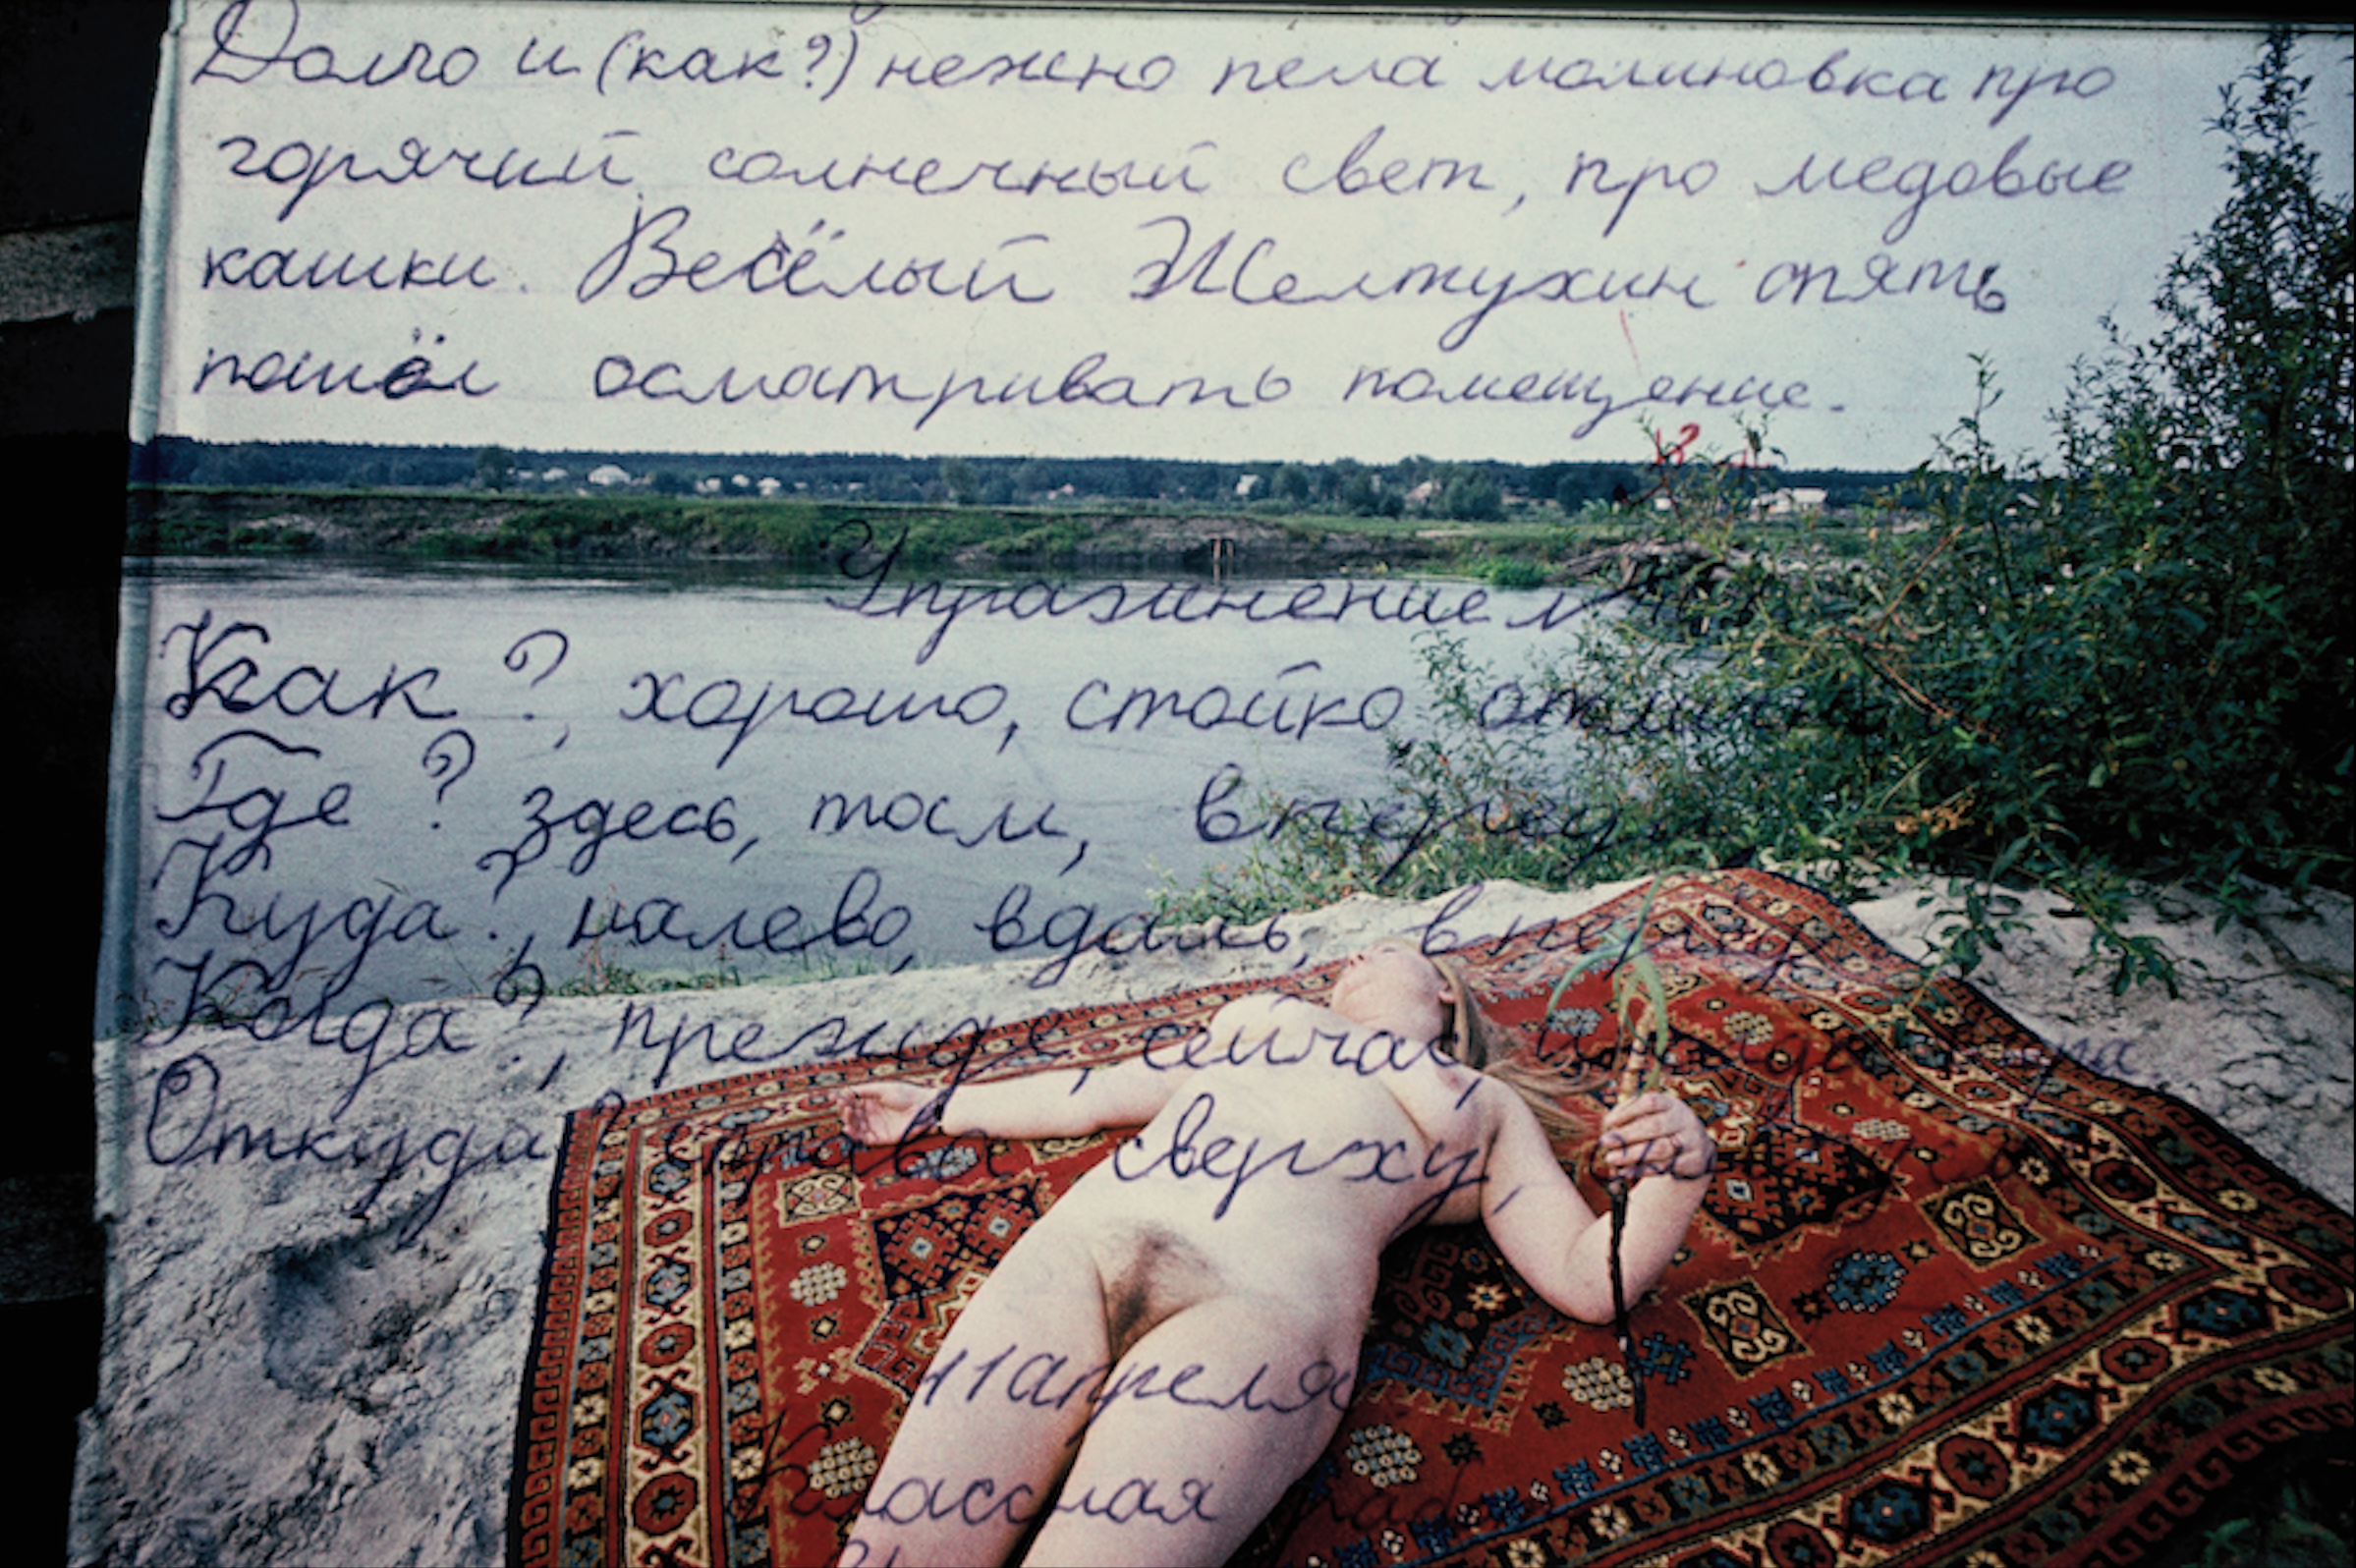 Долго и (как?) нежно пела малиновка про
горячий солнечный свет, про медовые
кашки. Весёлый Желтухин опять
пошёл осматривать помещение.
Упражнение
Как?, хорошо, стойко, отлично
Где? здесь, там, впереди
Куда?, налево, вдаль, вперёд
Когда?, прежде, сейчас,
Откуда? справа сверху,
11 апреля
Классная